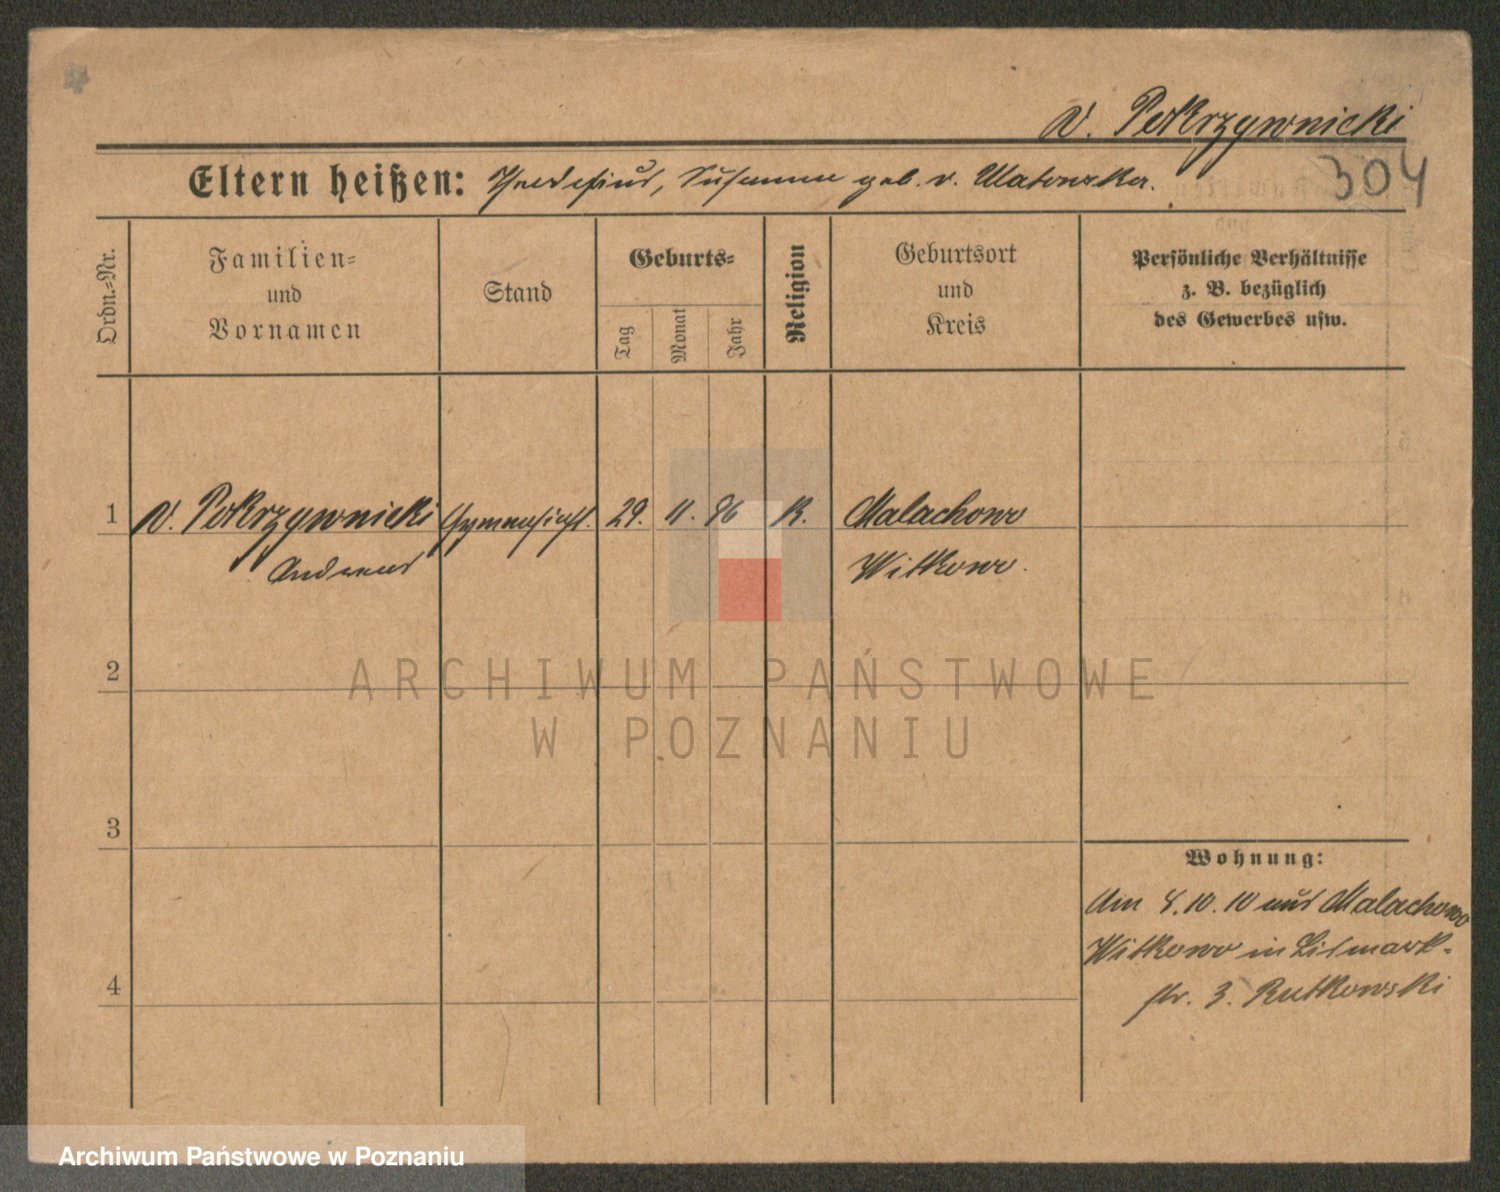 v. Pokrzywnicki
304
Eltern heißen: Thadeäus, Susanna geb. v. Watonska.
Ordn.-Nr.
Familien- und Vornamen
Stand
Geburts-
Tag
Monat
Jahr
Religion
Geburtsort und Kreis
Persönliche Verhältnisse
z. B. bezüglich
des Gewerbes usw.
1 v. Pokrzywnicki Gymnasiast. 29. 11. 96 K. Malachowo
Andreas Witkowo.
2
3
4
Wohnung:
Am 4.10.10 aus Malachowo
Witkowo in Bismark-
str. 3. Rutkowski
ARCHIWUM PAŃSTWOWE
W POZNANIU
Archiwum Państwowe w Poznaniu